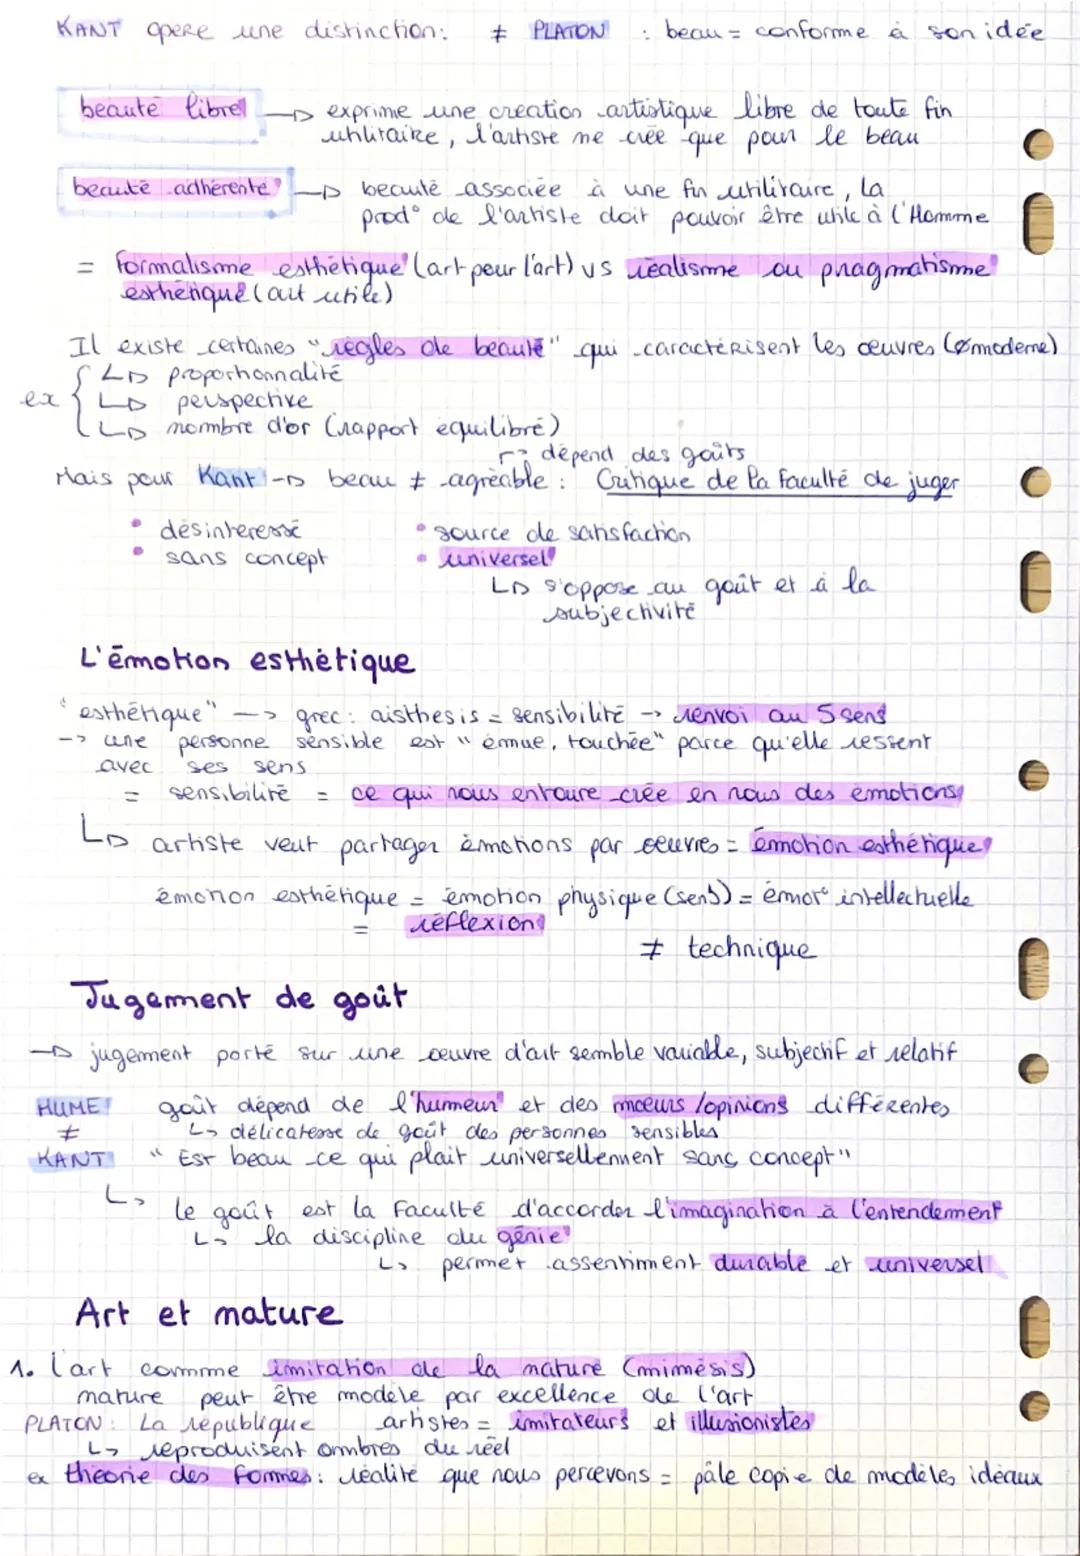 KANT opère une distinction: ≠ PLATON : beau = conforme à son idée
beauté libre → exprime une création artistique libre de toute fin
utilitaire, l'artiste ne crée que pour le beau
beauté adhérente → beauté associée à une fin utilitaire, la
prod° de l'artiste doit pouvoir être utile à l'Homme
= formalisme esthétique (art pour l'art) vs réalisme ou pragmatisme
esthétique (art utile)
Il existe certaines "règles de beauté" qui caractérisent les œuvres (ø moderne)
ex { ↳ proportionnalité
↳ perspective
↳ nombre d'or (rapport équilibré)
↱ dépend des goûts
Mais pour Kant → beau ≠ agréable : Critique de la faculté de juger
• désinteressé • source de satisfaction
• sans concept • universel
↳ s'oppose au goût et à la
subjectivité
L'émotion esthétique
"esthétique" → grec: aisthesis = sensibilité → renvoi au 5 sens
→ une personne sensible est "émue, touchée" parce qu'elle ressent
avec ses sens
= sensibilité = ce qui nous entoure crée en nous des émotions
↳ artiste veut partager émotions par oeuvres = émotion esthétique
émotion esthétique = émotion physique (sens) = émot° intellectuelle
= réflexion
≠ technique
Jugement de goût
→ jugement porté sur une œuvre d'art semble variable, subjectif et relatif
HUME goût dépend de l'humeur et des moeurs/opinions différentes
≠ ↳ délicatesse de goût des personnes sensibles
KANT "Est beau ce qui plait universellement sans concept"
↳ le goût est la faculté d'accorder l'imagination à l'entendement
↳ la discipline du génie
↳ permet assentiment durable et universel
Art et nature
1. l'art comme imitation de la nature (mimésis)
nature peut être modèle par excellence de l'art
PLATON: La république artistes = imitateurs et illusionistes
↳ reproduisent ombres du réel
ex théorie des formes: réalité que nous percevons = pâle copie de modèles idéaux